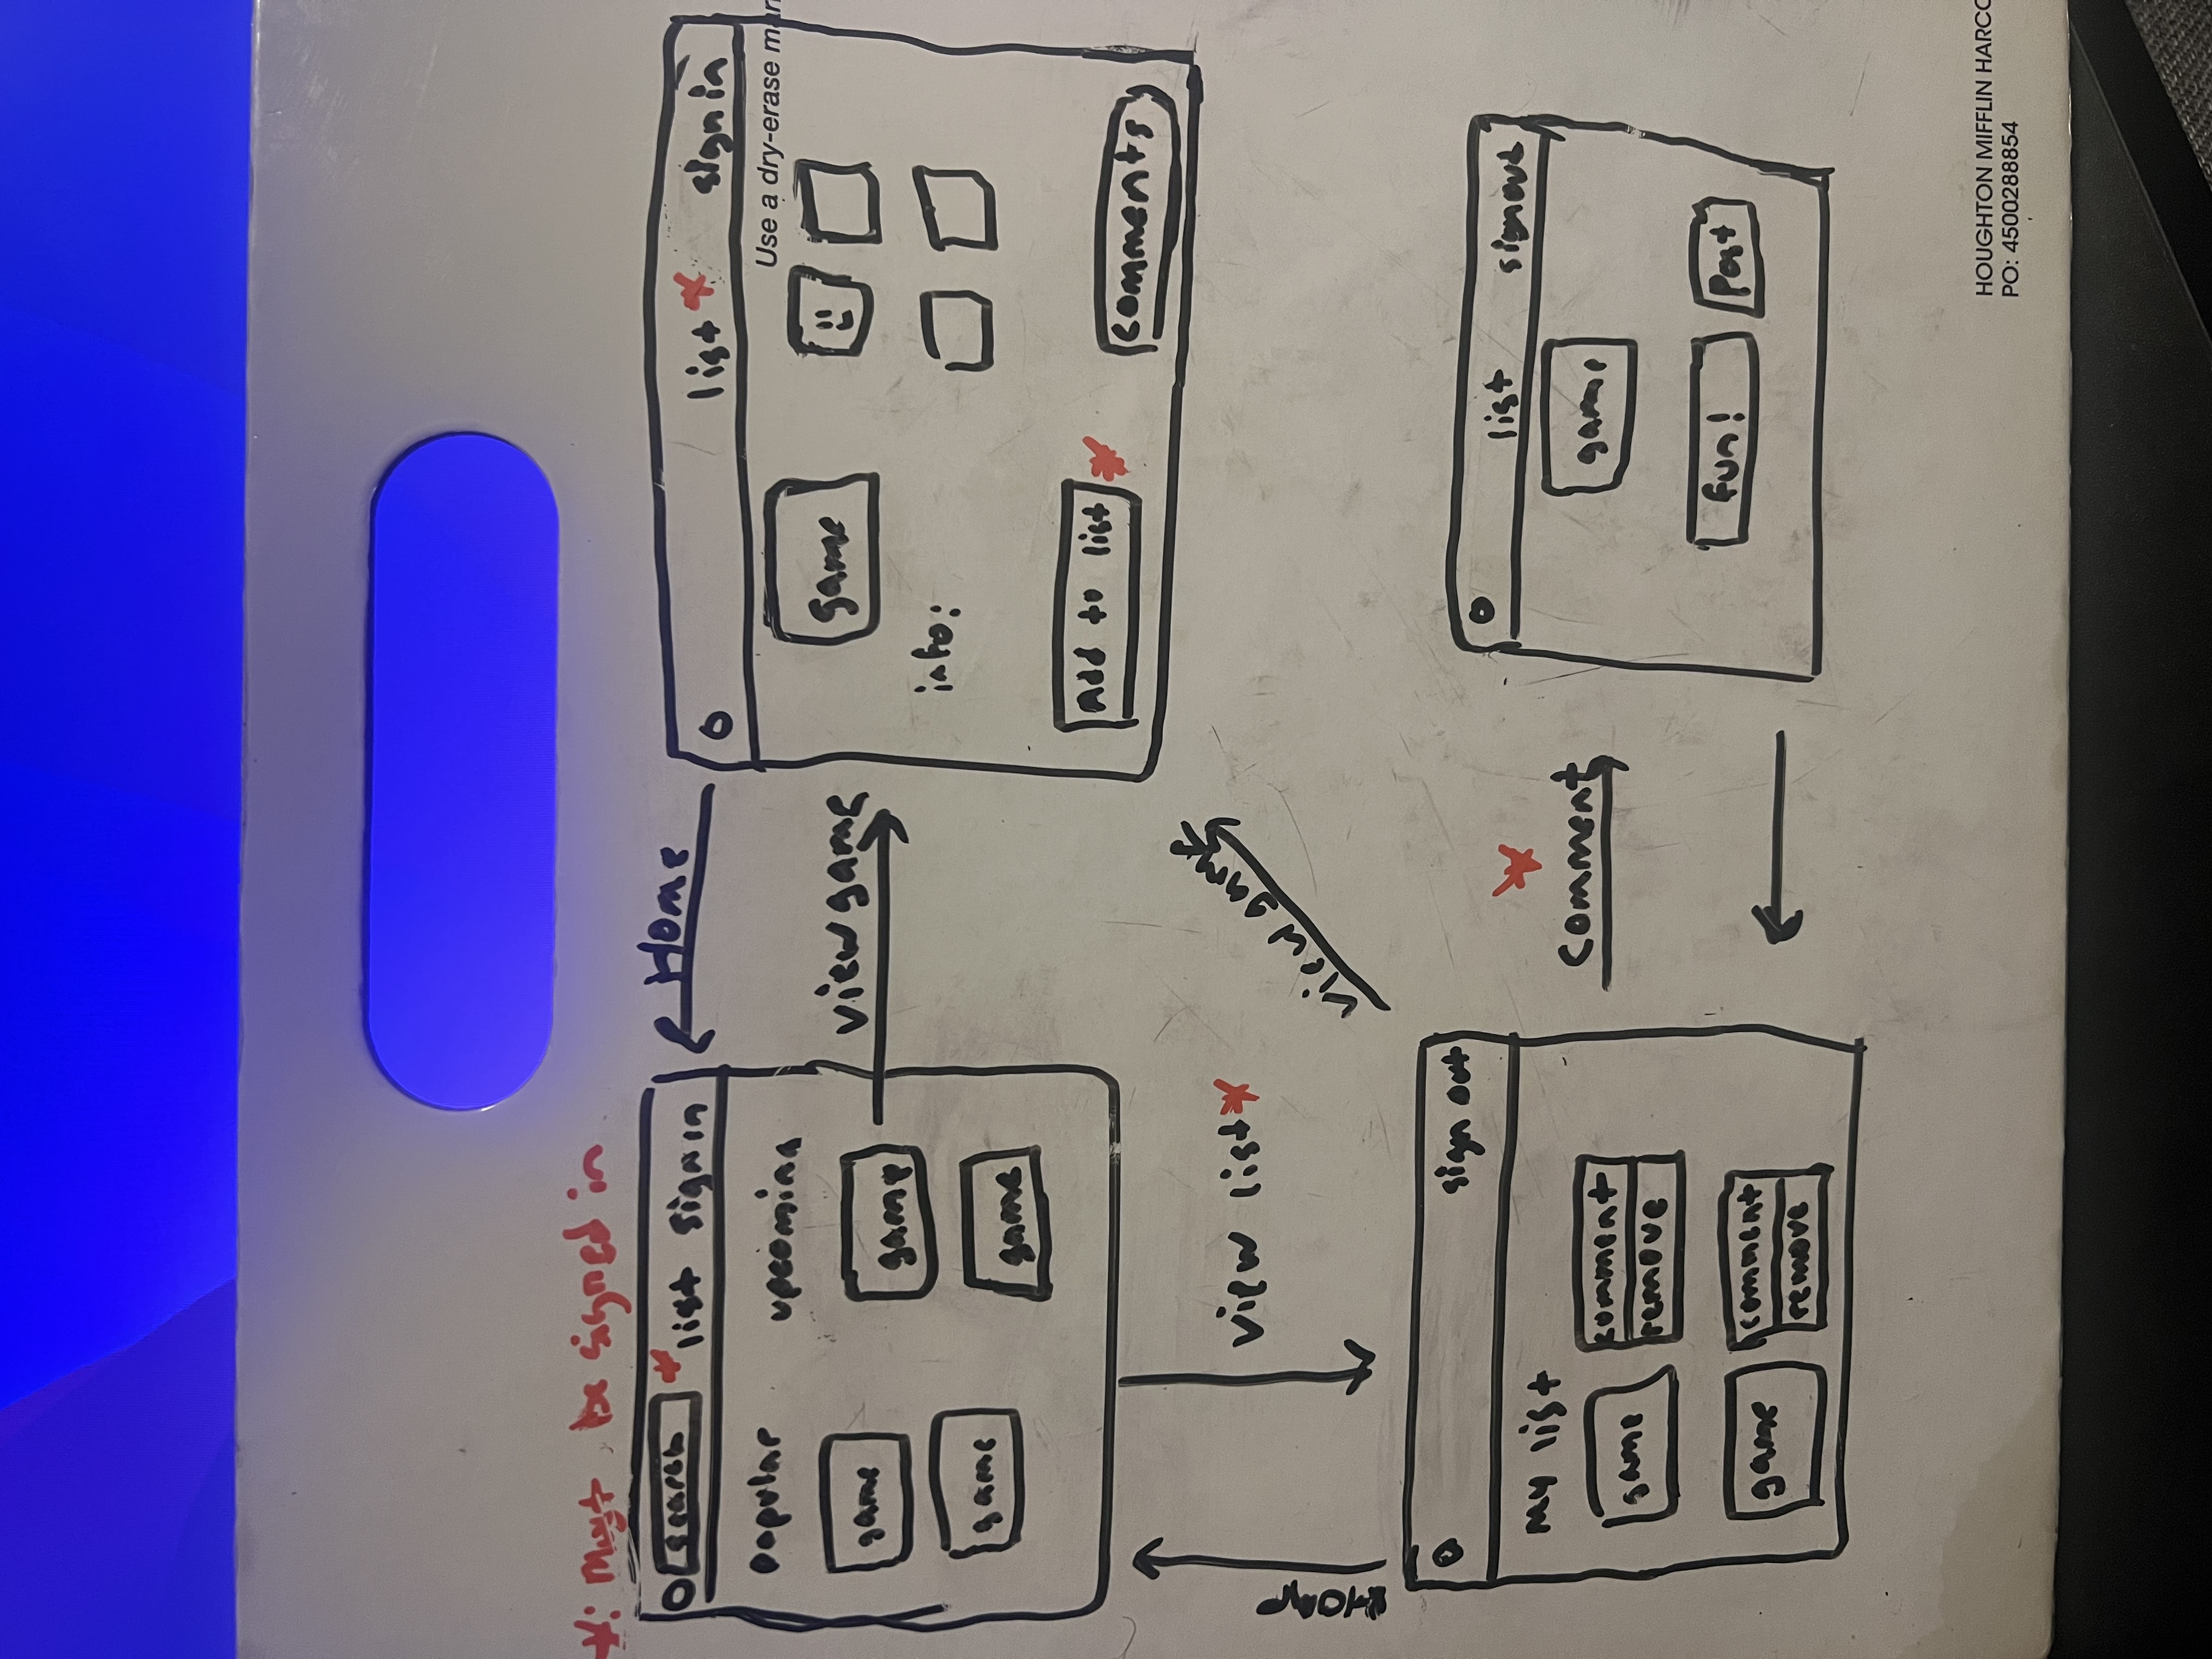 *: Must be signed in
search * list sign in
popular
upcoming
game
game
game
game
Home
view game
list * sign in
Use a dry-erase mar
game
info:
Add to list *
comments
view list *
Home
view game
sign out
My list
game
comment
remove
game
comment
remove
*
comment
list signout
game
fun!
Post
HOUGHTON MIFFLIN HARCO
PO: 4500288854